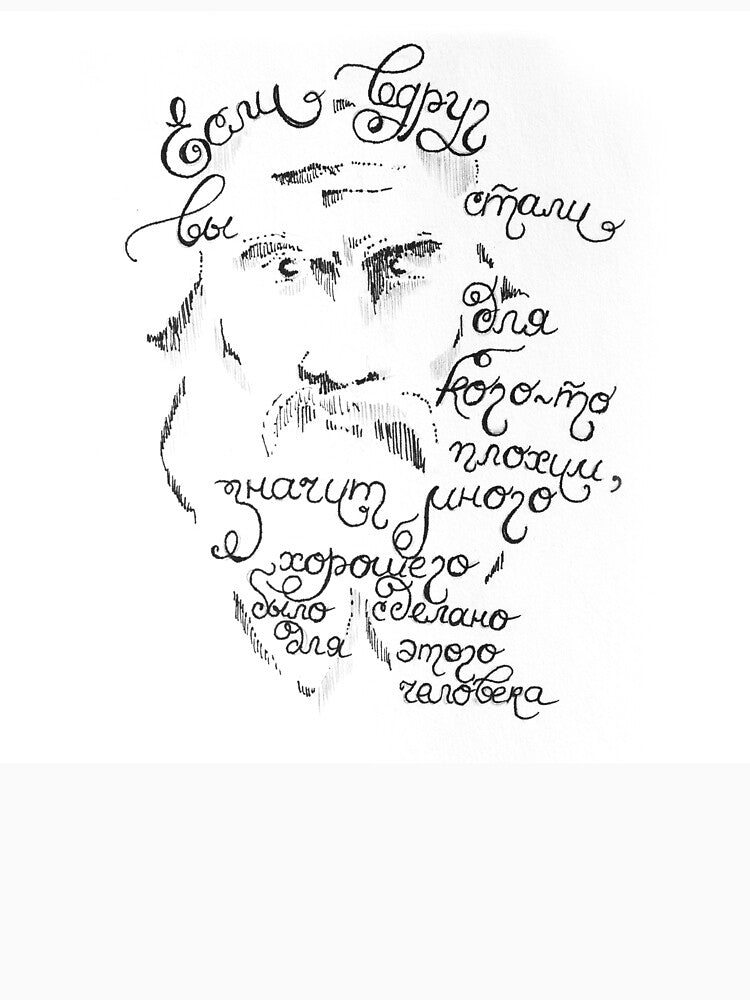 Если вдруг
вы стали
для
кого-то
плохим,
значит много
хорошего
было сделано
для этого
человека